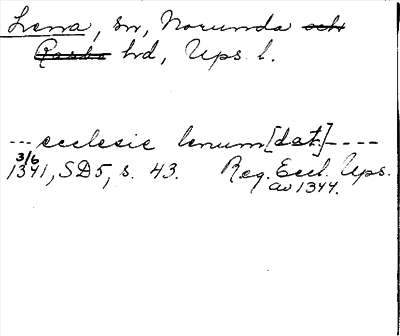 Lena, sn, Norunda och
Rasbo hd, Ups. l.
--- ecclesie lenum [dat.] ----
3/6
1341, SD5, s. 43. Reg. Eccl. Ups.
av 1344.